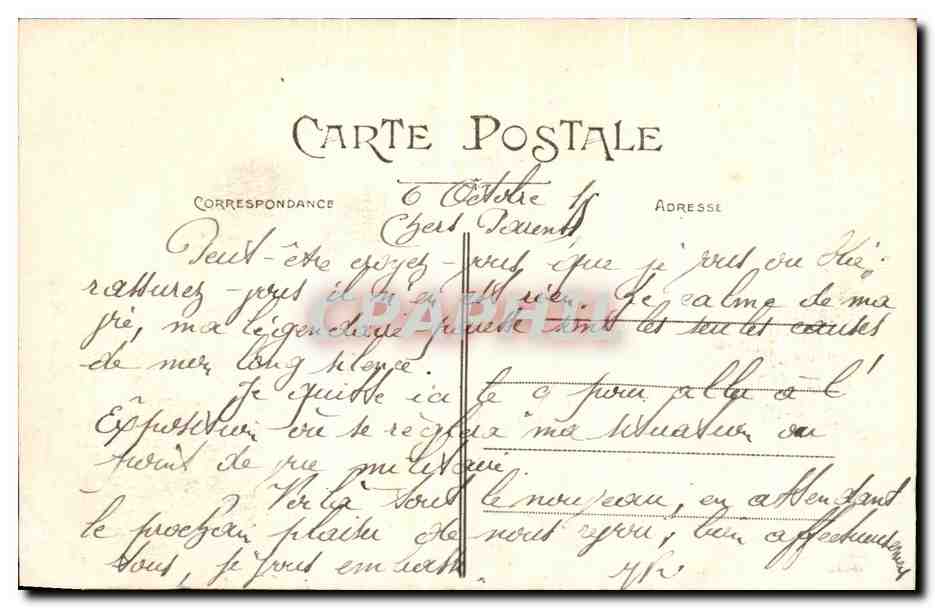 CARTE POSTALE
CORRESPONDANCE
ADRESSE
6 Octobre 15
Chers Parents
Peut-être croyez-vous que je vous ai
rassurez-vous il n'en est rien. Le calme de ma
vie, ma légendaire paresse sont les seules causes
de mon long silence.
Je quitte ici le 9 pour aller à l'
Exposition où se règlera ma situation au
point de vue militaire.
Voilà tout le nouveau, en attendant
le prochain plaisir de vous revoir, bien affectueusement
tous, je vous embrasse
CPAPHIL